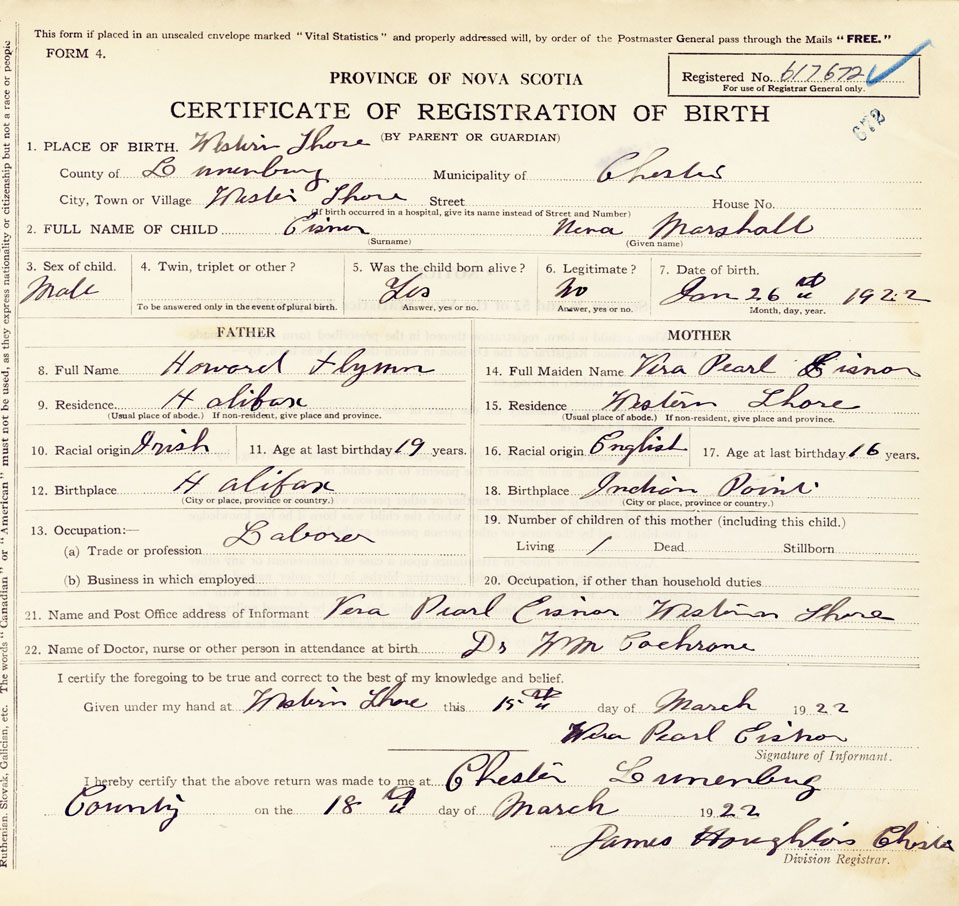 This form if placed in an unsealed envelope marked "Vital Statistics" and properly addressed will, by order of the Postmaster General pass through the Mails "FREE."
FORM 4.
PROVINCE OF NOVA SCOTIA
Registered No. 617672
For use of Registrar General only.
CERTIFICATE OF REGISTRATION OF BIRTH
672
(BY PARENT OR GUARDIAN)
1. PLACE OF BIRTH. Western Shore
County of Lunenburg Municipality of Chester
City, Town or Village Western Shore Street House No.
(If birth occurred in a hospital, give its name instead of Street and Number)
2. FULL NAME OF CHILD Eisnor Marshall
(Surname) (Given name)
3. Sex of child. 4. Twin, triplet or other? 5. Was the child born alive? 6. Legitimate? 7. Date of birth.
Male Yes No Jan 26 1922
To be answered only in the event of plural birth. Answer, yes or no. Answer, yes or no. Month, day, year.
FATHER MOTHER
8. Full Name Howard Flymn 14. Full Maiden Name Vera Pearl Eisnor
9. Residence Halifax 15. Residence Western Shore
(Usual place of abode.) If non-resident, give place and province. (Usual place of abode.) If non-resident, give place and province.
10. Racial origin Irish 11. Age at last birthday 19 years. 16. Racial origin English 17. Age at last birthday 16 years.
12. Birthplace Halifax 18. Birthplace Indian Point
(City or place, province or country.) (City or place, province or country.)
13. Occupation:— 19. Number of children of this mother (including this child.)
(a) Trade or profession Laborer Living 1 Dead Stillborn
(b) Business in which employed 20. Occupation, if other than household duties
21. Name and Post Office address of Informant Vera Pearl Eisnor Western Shore
22. Name of Doctor, nurse or other person in attendance at birth Dr Wm Cochrane
I certify the foregoing to be true and correct to the best of my knowledge and belief.
Given under my hand at Western Shore this 15th day of March 1922
Vera Pearl Eisnor
Signature of Informant.
I hereby certify that the above return was made to me at Chester Lunenburg
County on the 18th day of March 1922
James Houghton Chester
Division Registrar.
Ruthenian, Slovak, Galician, etc. The words "Canadian" or "American" must not be used, as they express nationality or citizenship but not a race or people